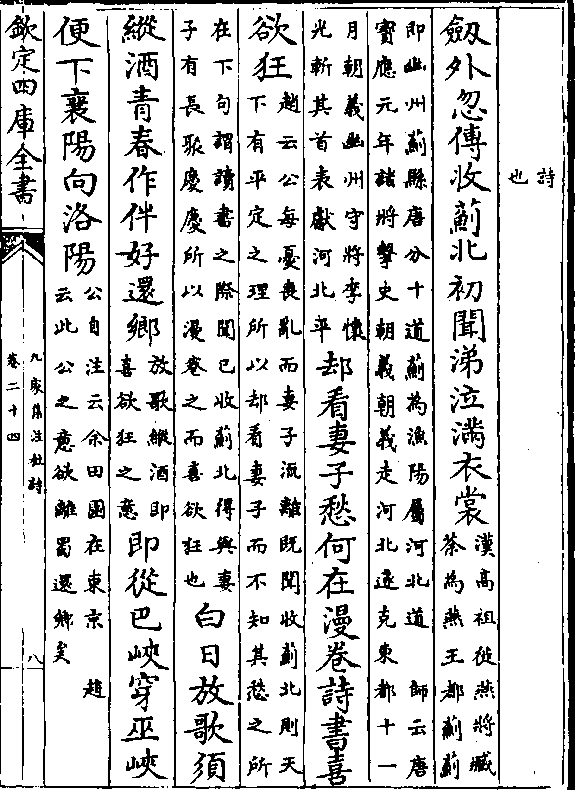 詩
也
劔外忽傳收薊北初聞涕泣滿衣裳
漢高祖從燕將臧
荼為燕王都薊薊
即幽州薊縣唐分十道薊為漁陽屬河北道 師云唐
寶應元年諸將擊史朝義朝義走河北遂克東都十一
月朝義幽州守將李懷
光斬其首表獻河北平
却看妻子愁何在漫卷詩書喜
欲狂
趙云公每憂喪亂而妻子流離既聞收薊北則天
下有平定之理所以却看妻子而不知其愁之所
在下句謂讀書之際聞已收薊北得與妻
子有長聚慶慶所以漫卷之而喜欲狂也
白日放歌須
縱酒青春作伴好還鄉
放歌縱酒即
喜欲狂之意
即從巴峽穿巫峽
便下襄陽向洛陽
公自注云余田園在東京 趙
云此公之意欲離蜀還鄉矣
欽定四庫全書
九家集注杜詩
卷二十四
八